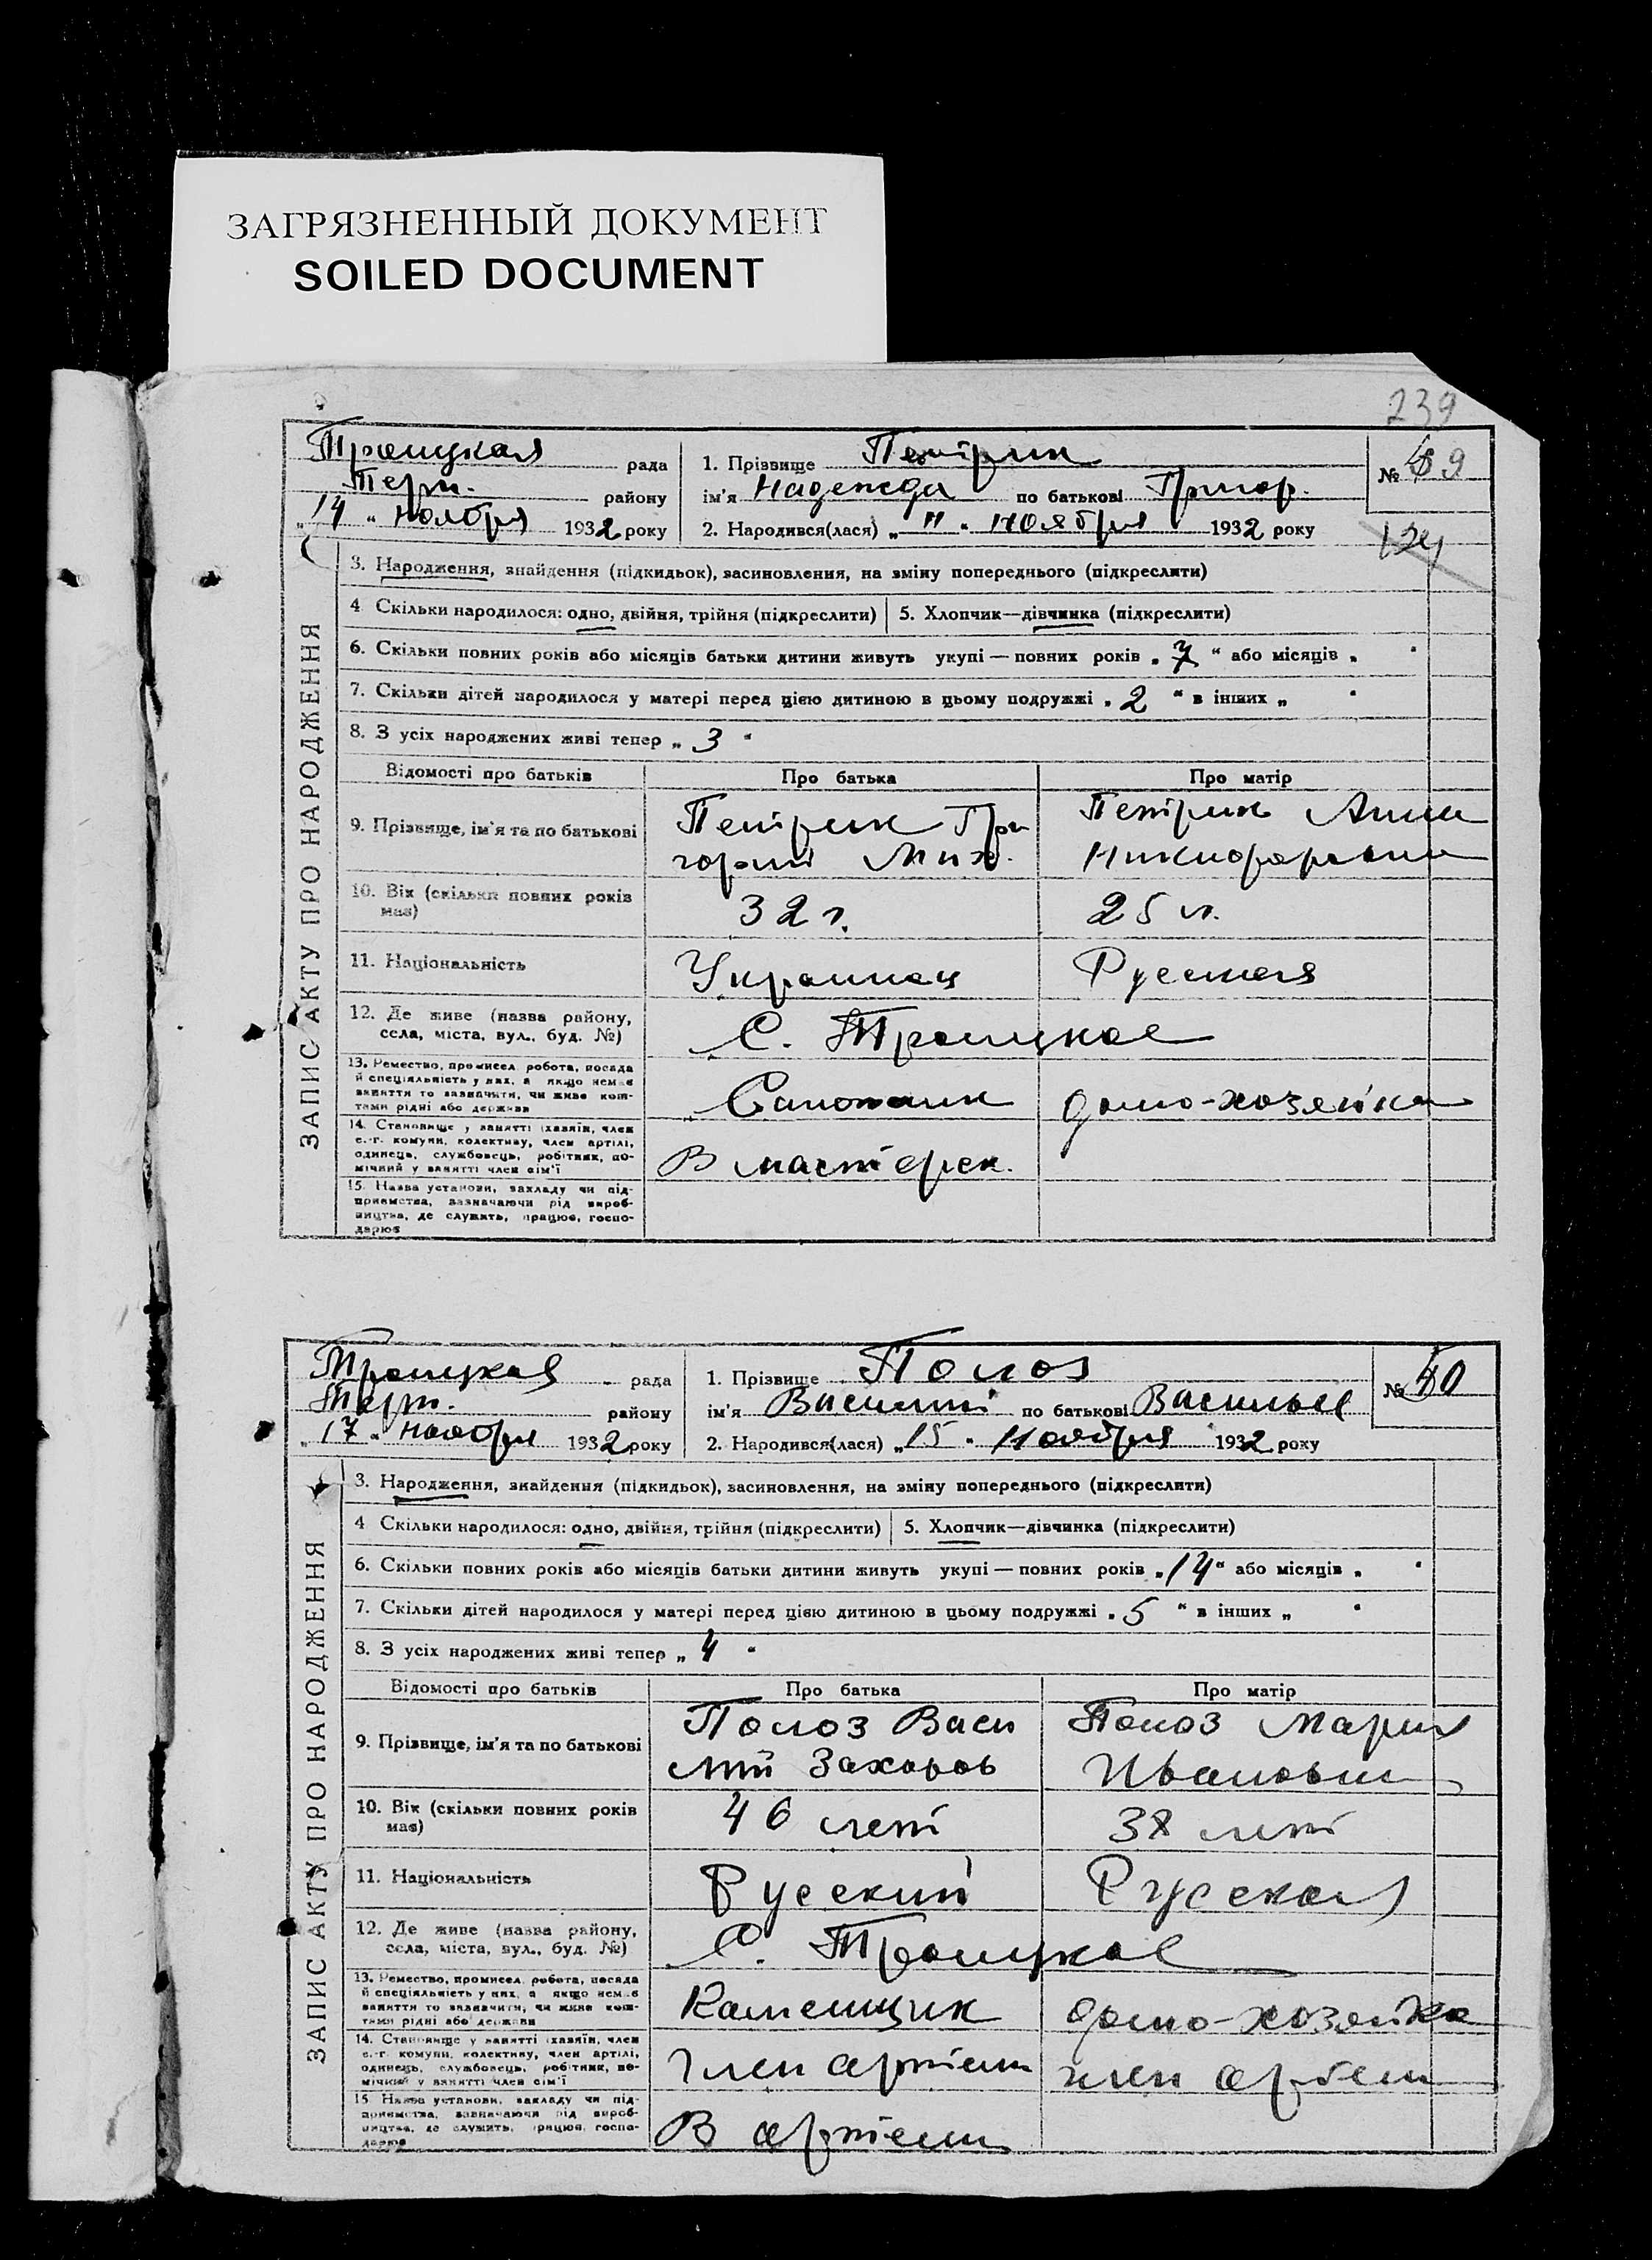 ЗАГРЯЗНЕННЫЙ ДОКУМЕНТ
SOILED DOCUMENT
239
Троицкая рада
Терп. району
„14 “ ноября 1932 року
1. Прізвище Петрик
ім'я Надежда по батькові Григор.
2. Народився(лася) „11 “ ноября 1932 року
№ 49
124
ЗАПИС АКТУ ПРО НАРОДЖЕННЯ
3. Народження, знайдення (підкидьок), засиновлення, на зміну попереднього (підкреслити)
4 Скільки народилося: одно, двійня, трійня (підкреслити) 5. Хлопчик—дівчинка (підкреслити)
6. Скільки повних років або місяців батьки дитини живуть укупі — повних років „ 7 “ або місяців „ “
7. Скільки дітей народилося у матері перед цією дитиною в цьому подружжі „ 2 “ в інших „ “
8. З усіх народжених живі тепер „ 3 “
Відомості про батьків Про батька Про матір
9. Прізвище, ім'я та по батькові
Петрик Гри
горий Мих.
Петрик Анна
Никифоровна
10. Вік (скільки повних років
має)
32 г.
25 л.
11. Національність Украинец Русская
12. Де живе (назва району,
села, міста, вул., буд. №)
С. Троицкое
13. Ремество, промисел, робота, посада
й спеціяльність у них, а якщо немає
заняття то зазначити, чи живе кош-
тами рідні або держави
Сапожник домо-хозяйка
14. Становище у занятті (хазяїн, член
с.-г. комуни, колективу, член артілі,
одинець, службовець, робітник, по-
мічний у занятті член сім'ї
В мастерск.
15. Назва установи, закладу чи під-
приємства, зазначаючи рід вироб-
ництва, де служить, працює, госпо-
дарює
Троицкая рада
Терп. району
„17 “ ноября 1932 року
1. Прізвище Полоз
ім'я Василий по батькові Васильев
2. Народився(лася) „15 “ ноября 1932 року
№ 50
ЗАПИС АКТУ ПРО НАРОДЖЕННЯ
3. Народження, знайдення (підкидьок), засиновлення, на зміну попереднього (підкреслити)
4 Скільки народилося: одно, двійня, трійня (підкреслити) 5. Хлопчик—дівчинка (підкреслити)
6. Скільки повних років або місяців батьки дитини живуть укупі — повних років „ 14 “ або місяців „ “
7. Скільки дітей народилося у матері перед цією дитиною в цьому подружжі „ 5 “ в інших „ “
8. З усіх народжених живі тепер „ 4 “
Відомості про батьків Про батька Про матір
9. Прізвище, ім'я та по батькові
Полоз Васи
лий Захаров
Полоз Мария
Ивановна
10. Вік (скільки повних років
має)
46 лет
38 лет
11. Національність Русский Русская
12. Де живе (назва району,
села, міста, вул., буд. №)
С. Троицкое
13. Ремество, промисел, робота, посада
й спеціяльність у них, а якщо немає
заняття то зазначити, чи живе кош-
тами рідні або держави
Каменщик домо-хозяйка
14. Становище у занятті (хазяїн, член
с.-г. комуни, колективу, член артілі,
одинець, службовець, робітник, по-
мічний у занятті член сім'ї
Член артели член артели
15 Назва установи, закладу чи під-
приємства, зазначаючи рід вироб-
ництва, де служить, працює, госпо-
дарює
В артели